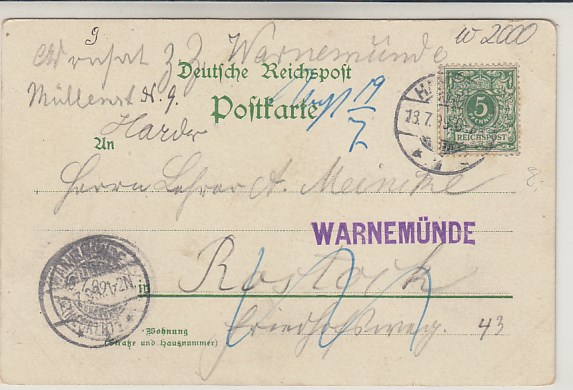 9
w 2000
z. Z. Warnemünde
Deutsche Reichspost
Müllerst N. 9.
Postkarte
19/7
Harder
5
REICHSPOST
An
Herrn Lehrer A. Meincke
WARNEMÜNDE
Rostock
in
Friedhofsweg. 43
Wohnung
(Straße und Hausnummer)